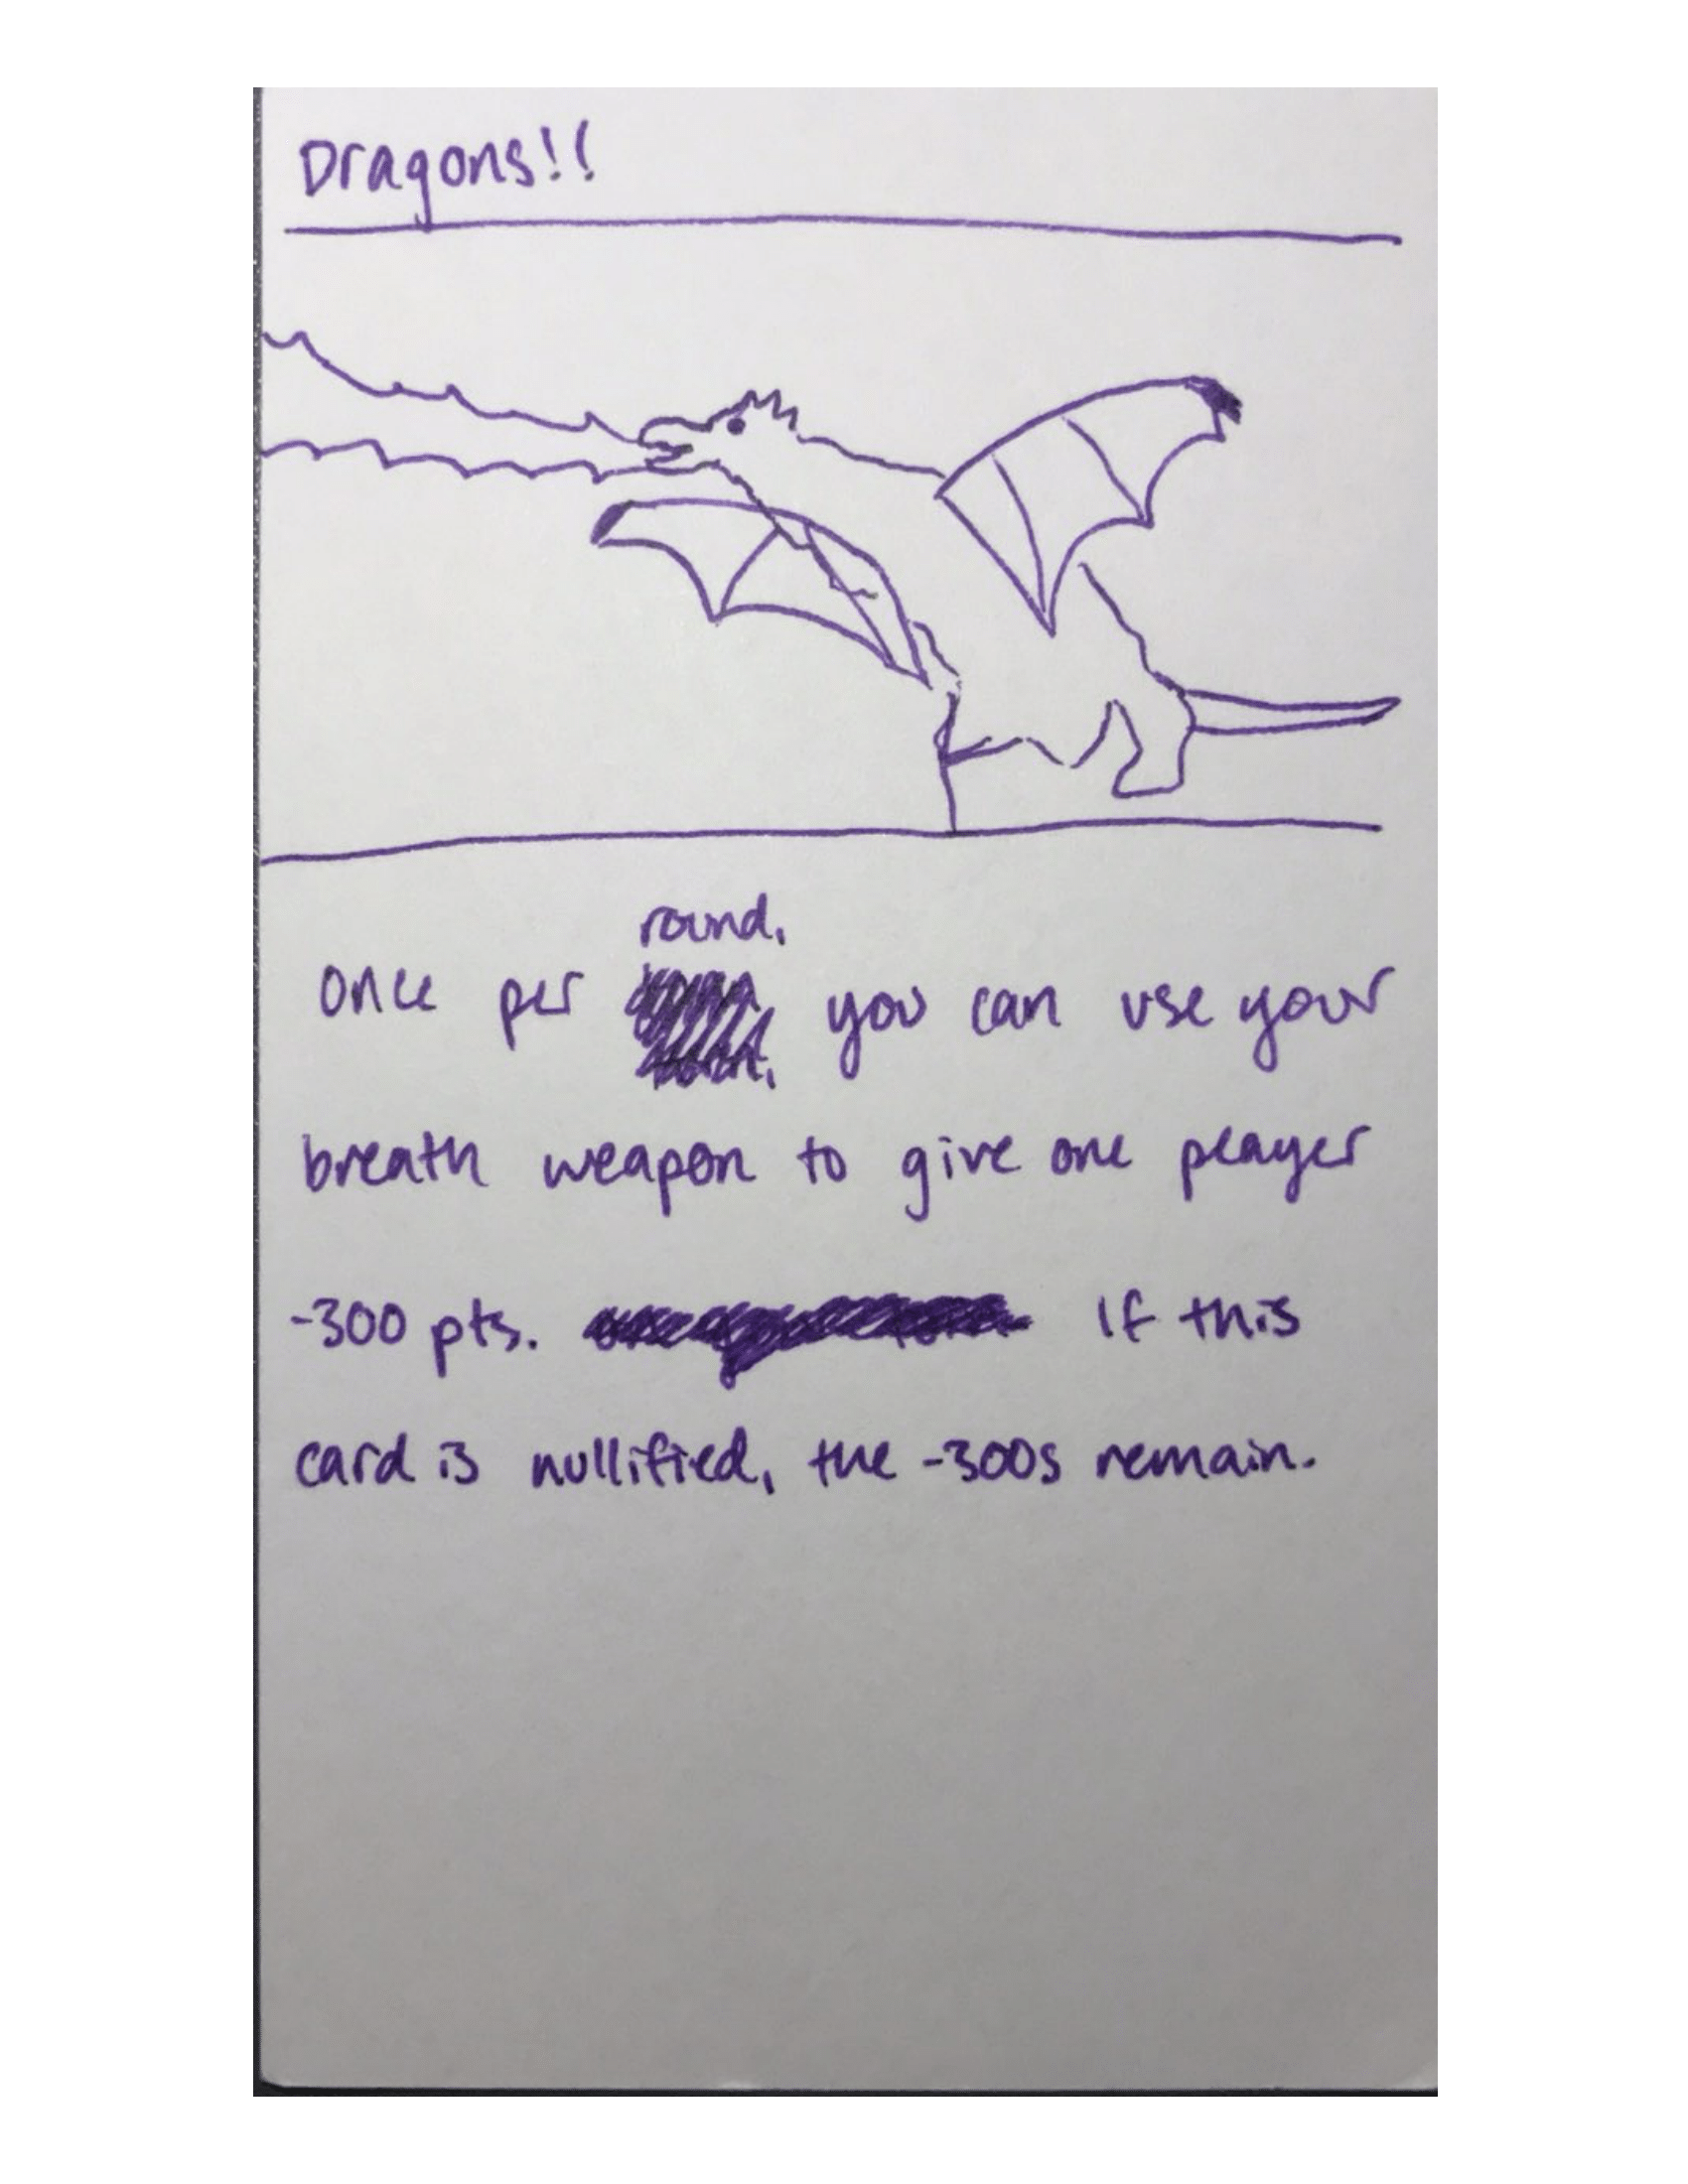 Dragons!!
round,
once per you can use your
breath weapon to give one player
-300 pts. If this
card is nullified, the -300s remain.